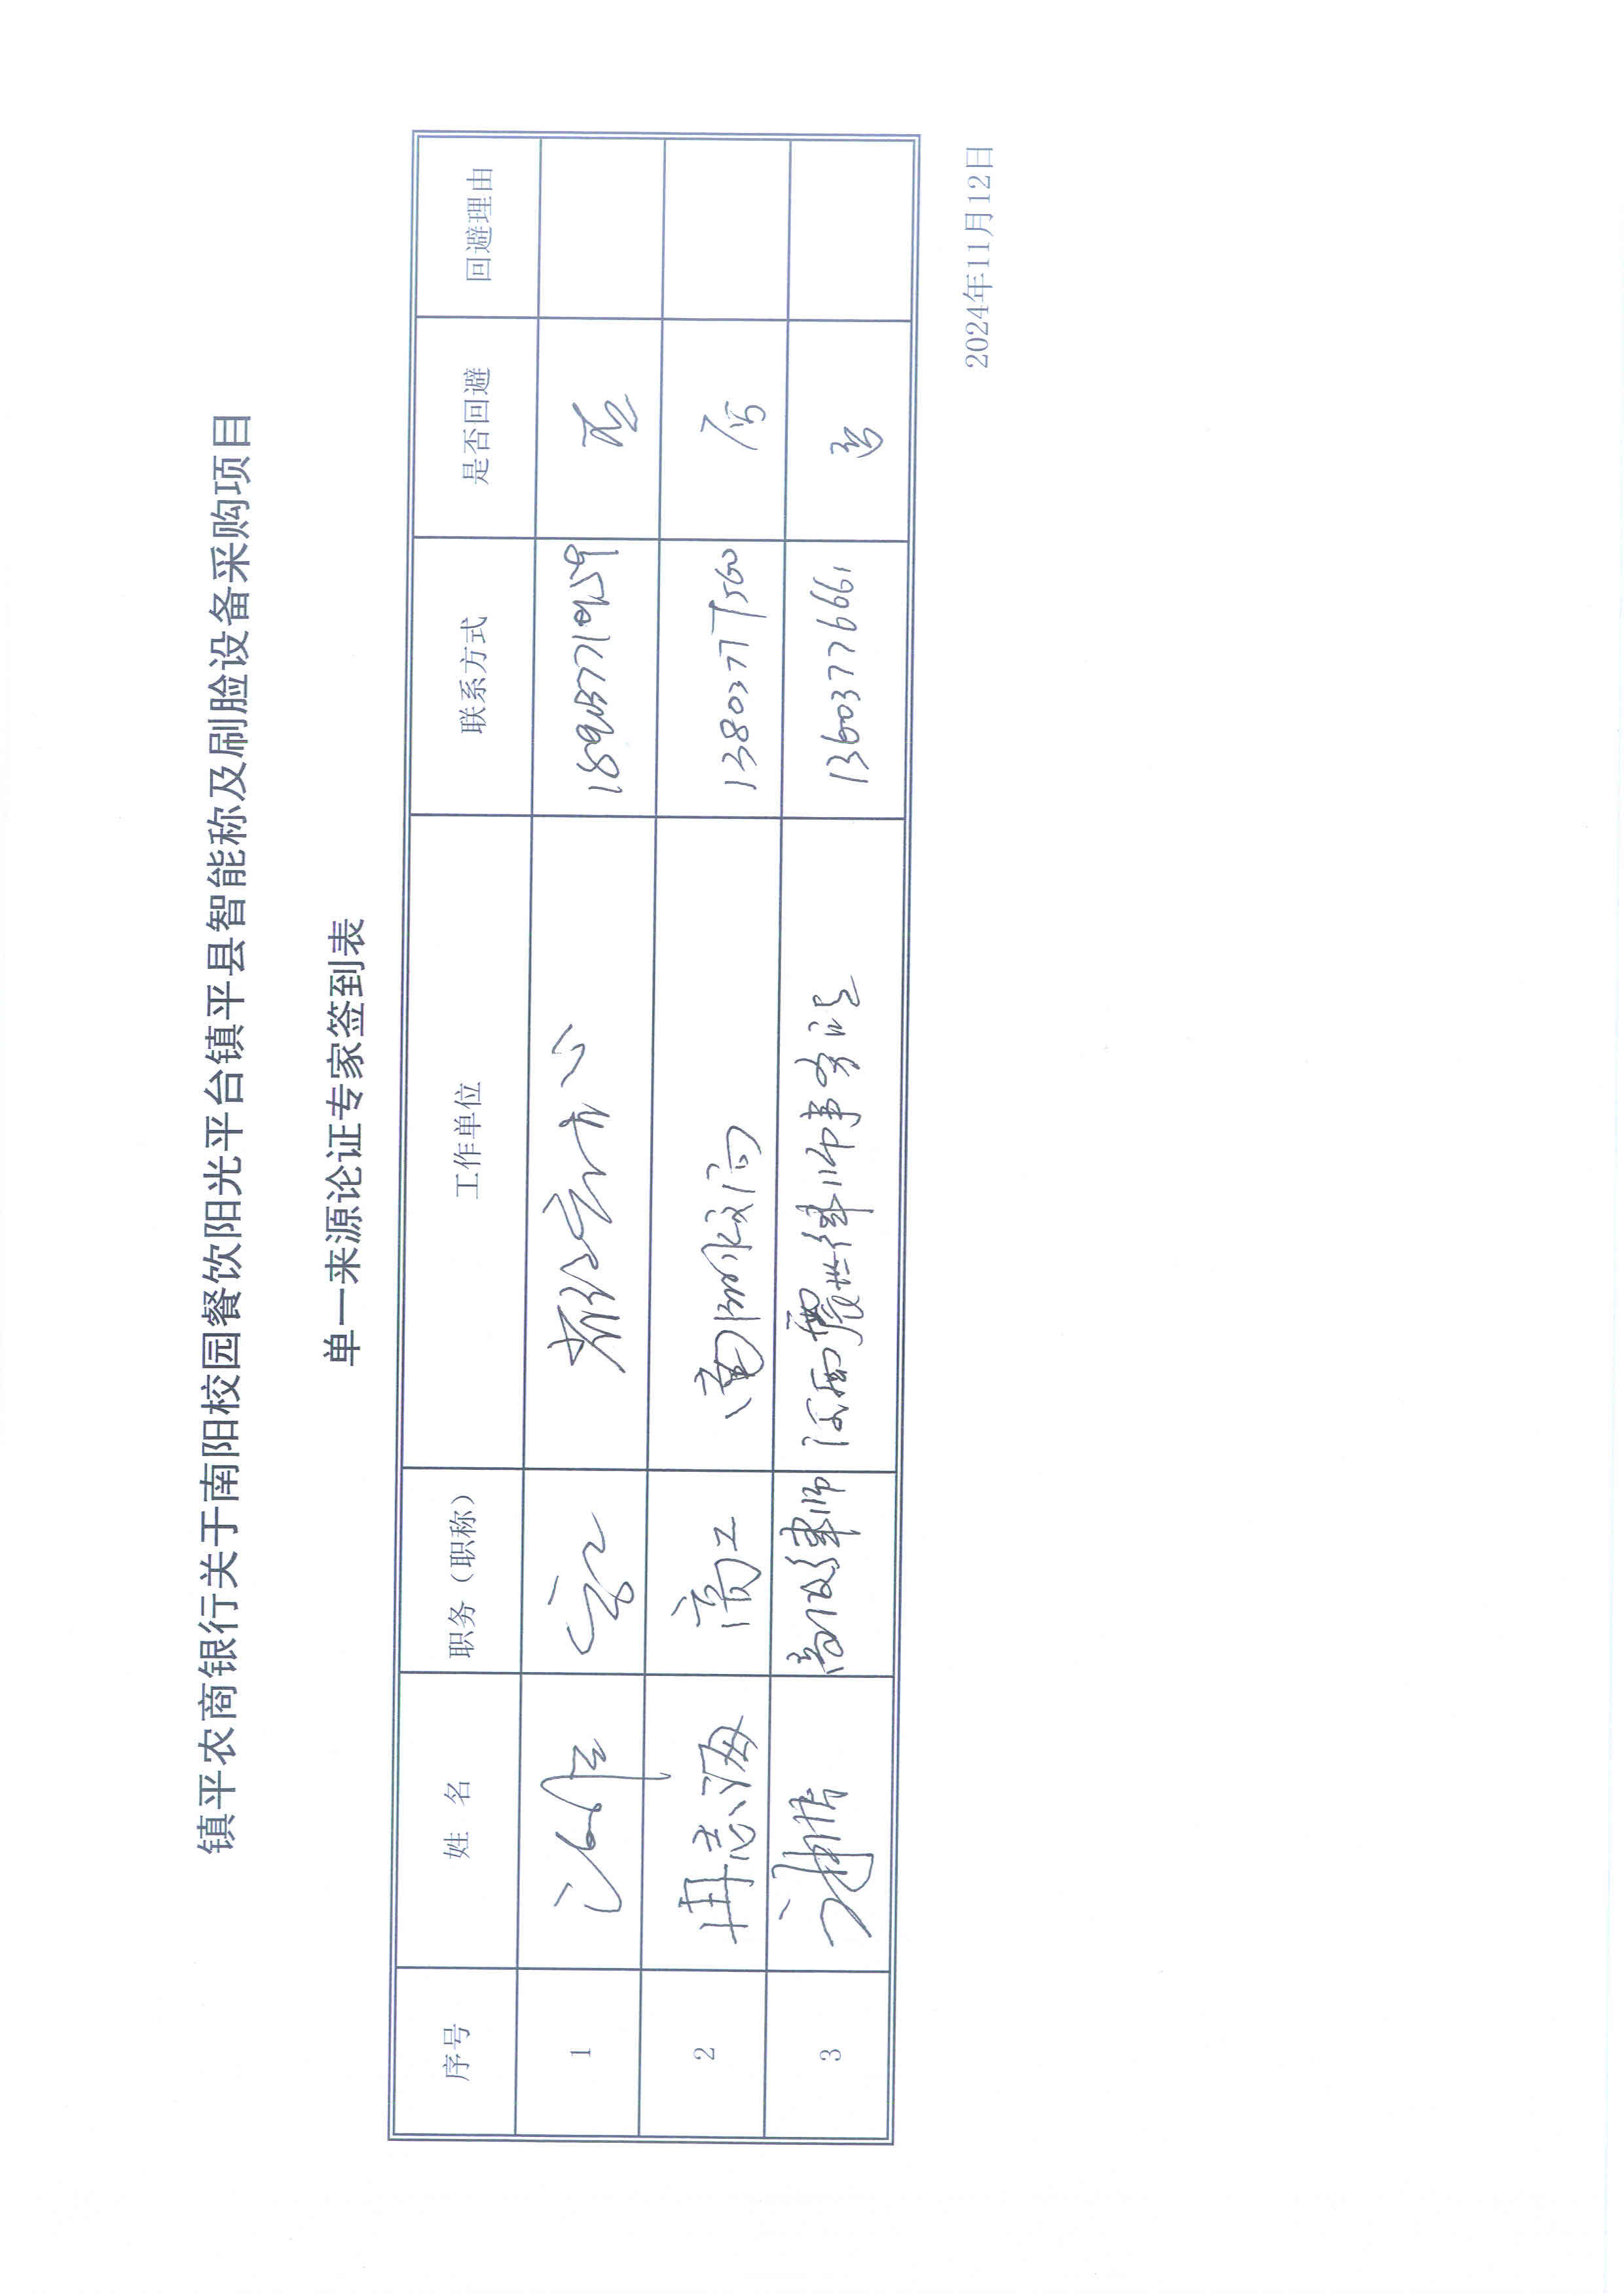 镇平农商银行关于南阳校园餐饮阳光平台镇平县智能称及刷脸设备采购项目
单一来源论证专家签到表
序号 姓 名 职务（职称） 工作单位 联系方式 是否回避 回避理由
1 高工 否
2 冉志海 高工 13803777560 否
3 高级律师 律师事务所 13603776661 否
2024年11月12日